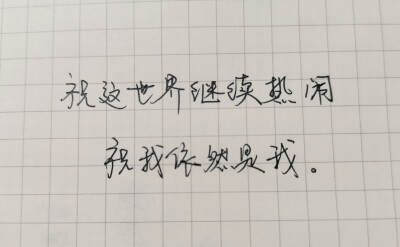 祝这世界继续热闹
祝我依然是我。